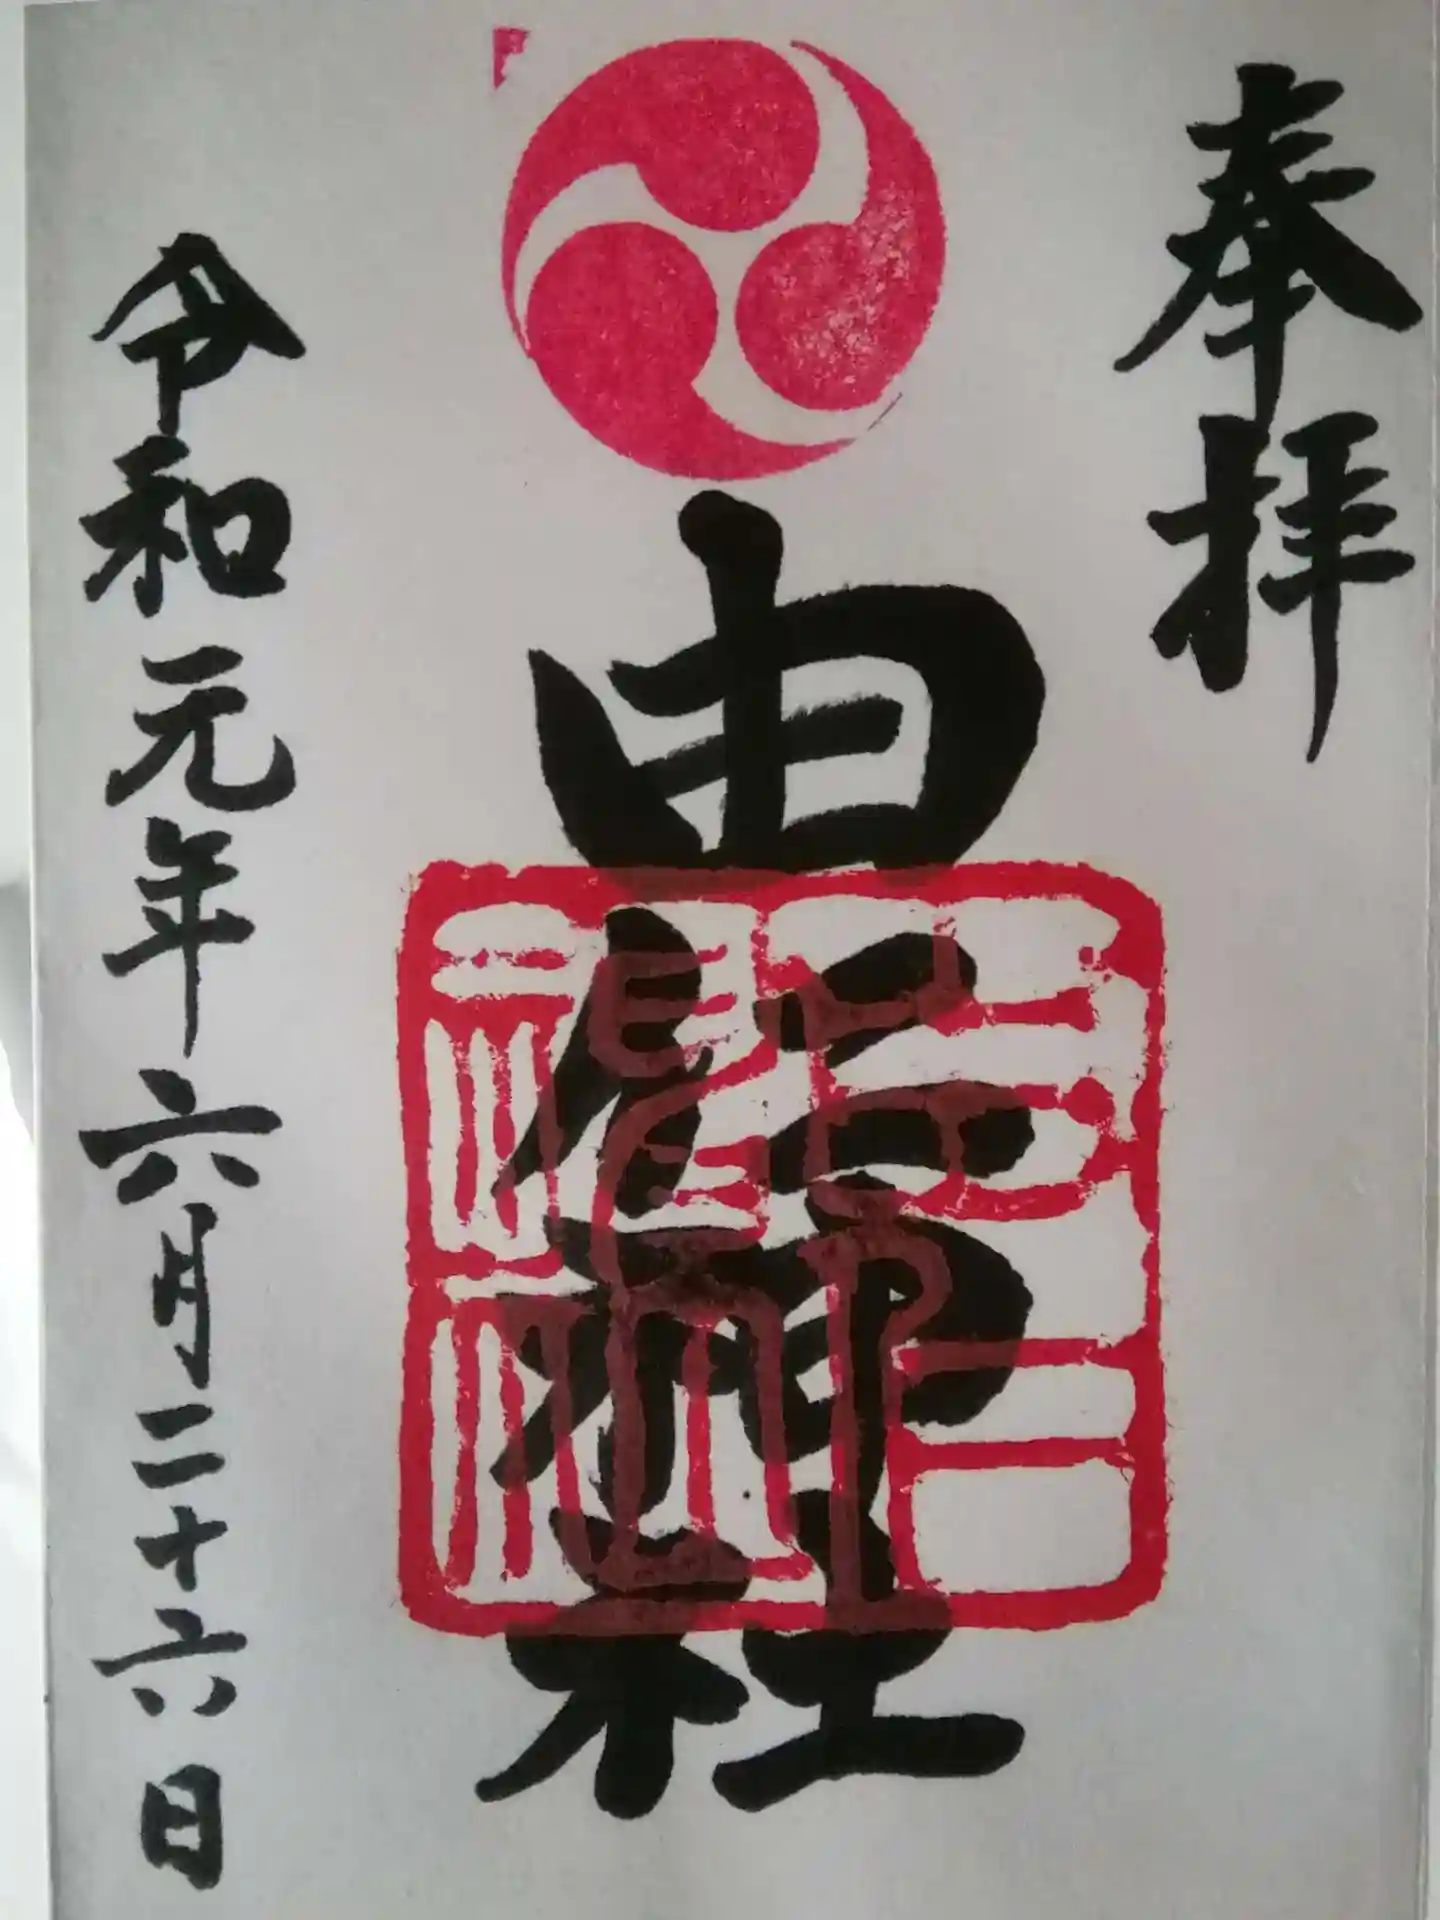 奉拝
由仁神社
令和元年六月二十六日